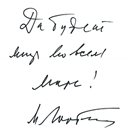 Да будет
мир во всем
мире!
М. Горб